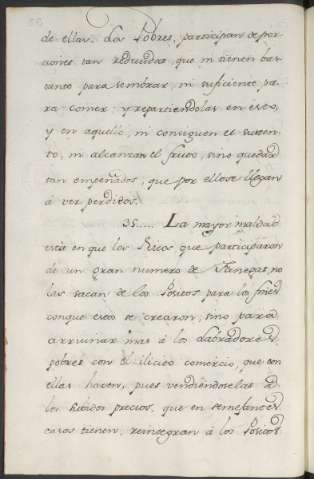 de ellas. Los Pobres, participan de por-
ciones tan reducidas, que ni tienen bas-
tante para sembrar, ni suficiente pa-
ra comer: y repartiendolas en esto,
y en aquello, ni consiguen el susten-
to, ni alcanzan el fruto, sino quedar
tan empeñados, que por ello se llegan
á ver perdidos.
35..... La mayor maldad
está en que los Ricos que participaron
de un gran numero de Fanegas, no
las sacan de los Positos para los fines
conque estos se crearon, sino para
arruinar mas á los Labradores
pobres con el ilicito comercio, que con
ellas hacen, pues vendiendoselas á
los subidos precios, que en semejantes
casos tienen, reintegran á los Positos